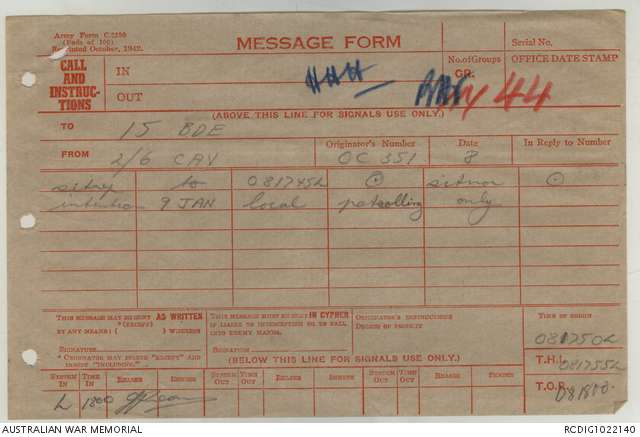 Army Form C.2136
(Pads of 100)
Reprinted October, 1942.
MESSAGE FORM
Serial No.
CALL
AND
INSTRUC-
TIONS
IN
OUT
No. of Groups
GR.
OFFICE DATE STAMP
44
(ABOVE THIS LINE FOR SIGNALS USE ONLY.)
TO 15 BDE
FROM 2/6 CAV
Originator's Number
OC 351
Date
8
In Reply to Number
sitrep to 081745L ⊙ sitnor ⊙
intentions 9 JAN local patrolling only
THIS MESSAGE MAY BE SENT AS WRITTEN
*(EXCEPT)
BY ANY MEANS ( ) WIRELESS
SIGNATURE
* ORIGINATOR MAY DELETE "EXCEPT" AND
INSERT "INCLUDING."
THIS MESSAGE MUST BE SENT IN CYPHER
IF LIABLE TO INTERCEPTION OR TO FALL
INTO ENEMY HANDS.
SIGNATURE
ORIGINATOR'S INSTRUCTIONS
DEGREE OF PRIORITY
TIME OF ORIGIN
081750L
T.H.I.
081755L
T.O.R.
(BELOW THIS LINE FOR SIGNALS USE ONLY.)
SYSTEM IN
TIME IN
READER
SENDER
SYSTEM OUT
TIME OUT
READER
SENDER
SYSTEM OUT
TIME OUT
READER
SENDER
L 1800
AUSTRALIAN WAR MEMORIAL
RCDIG1022140